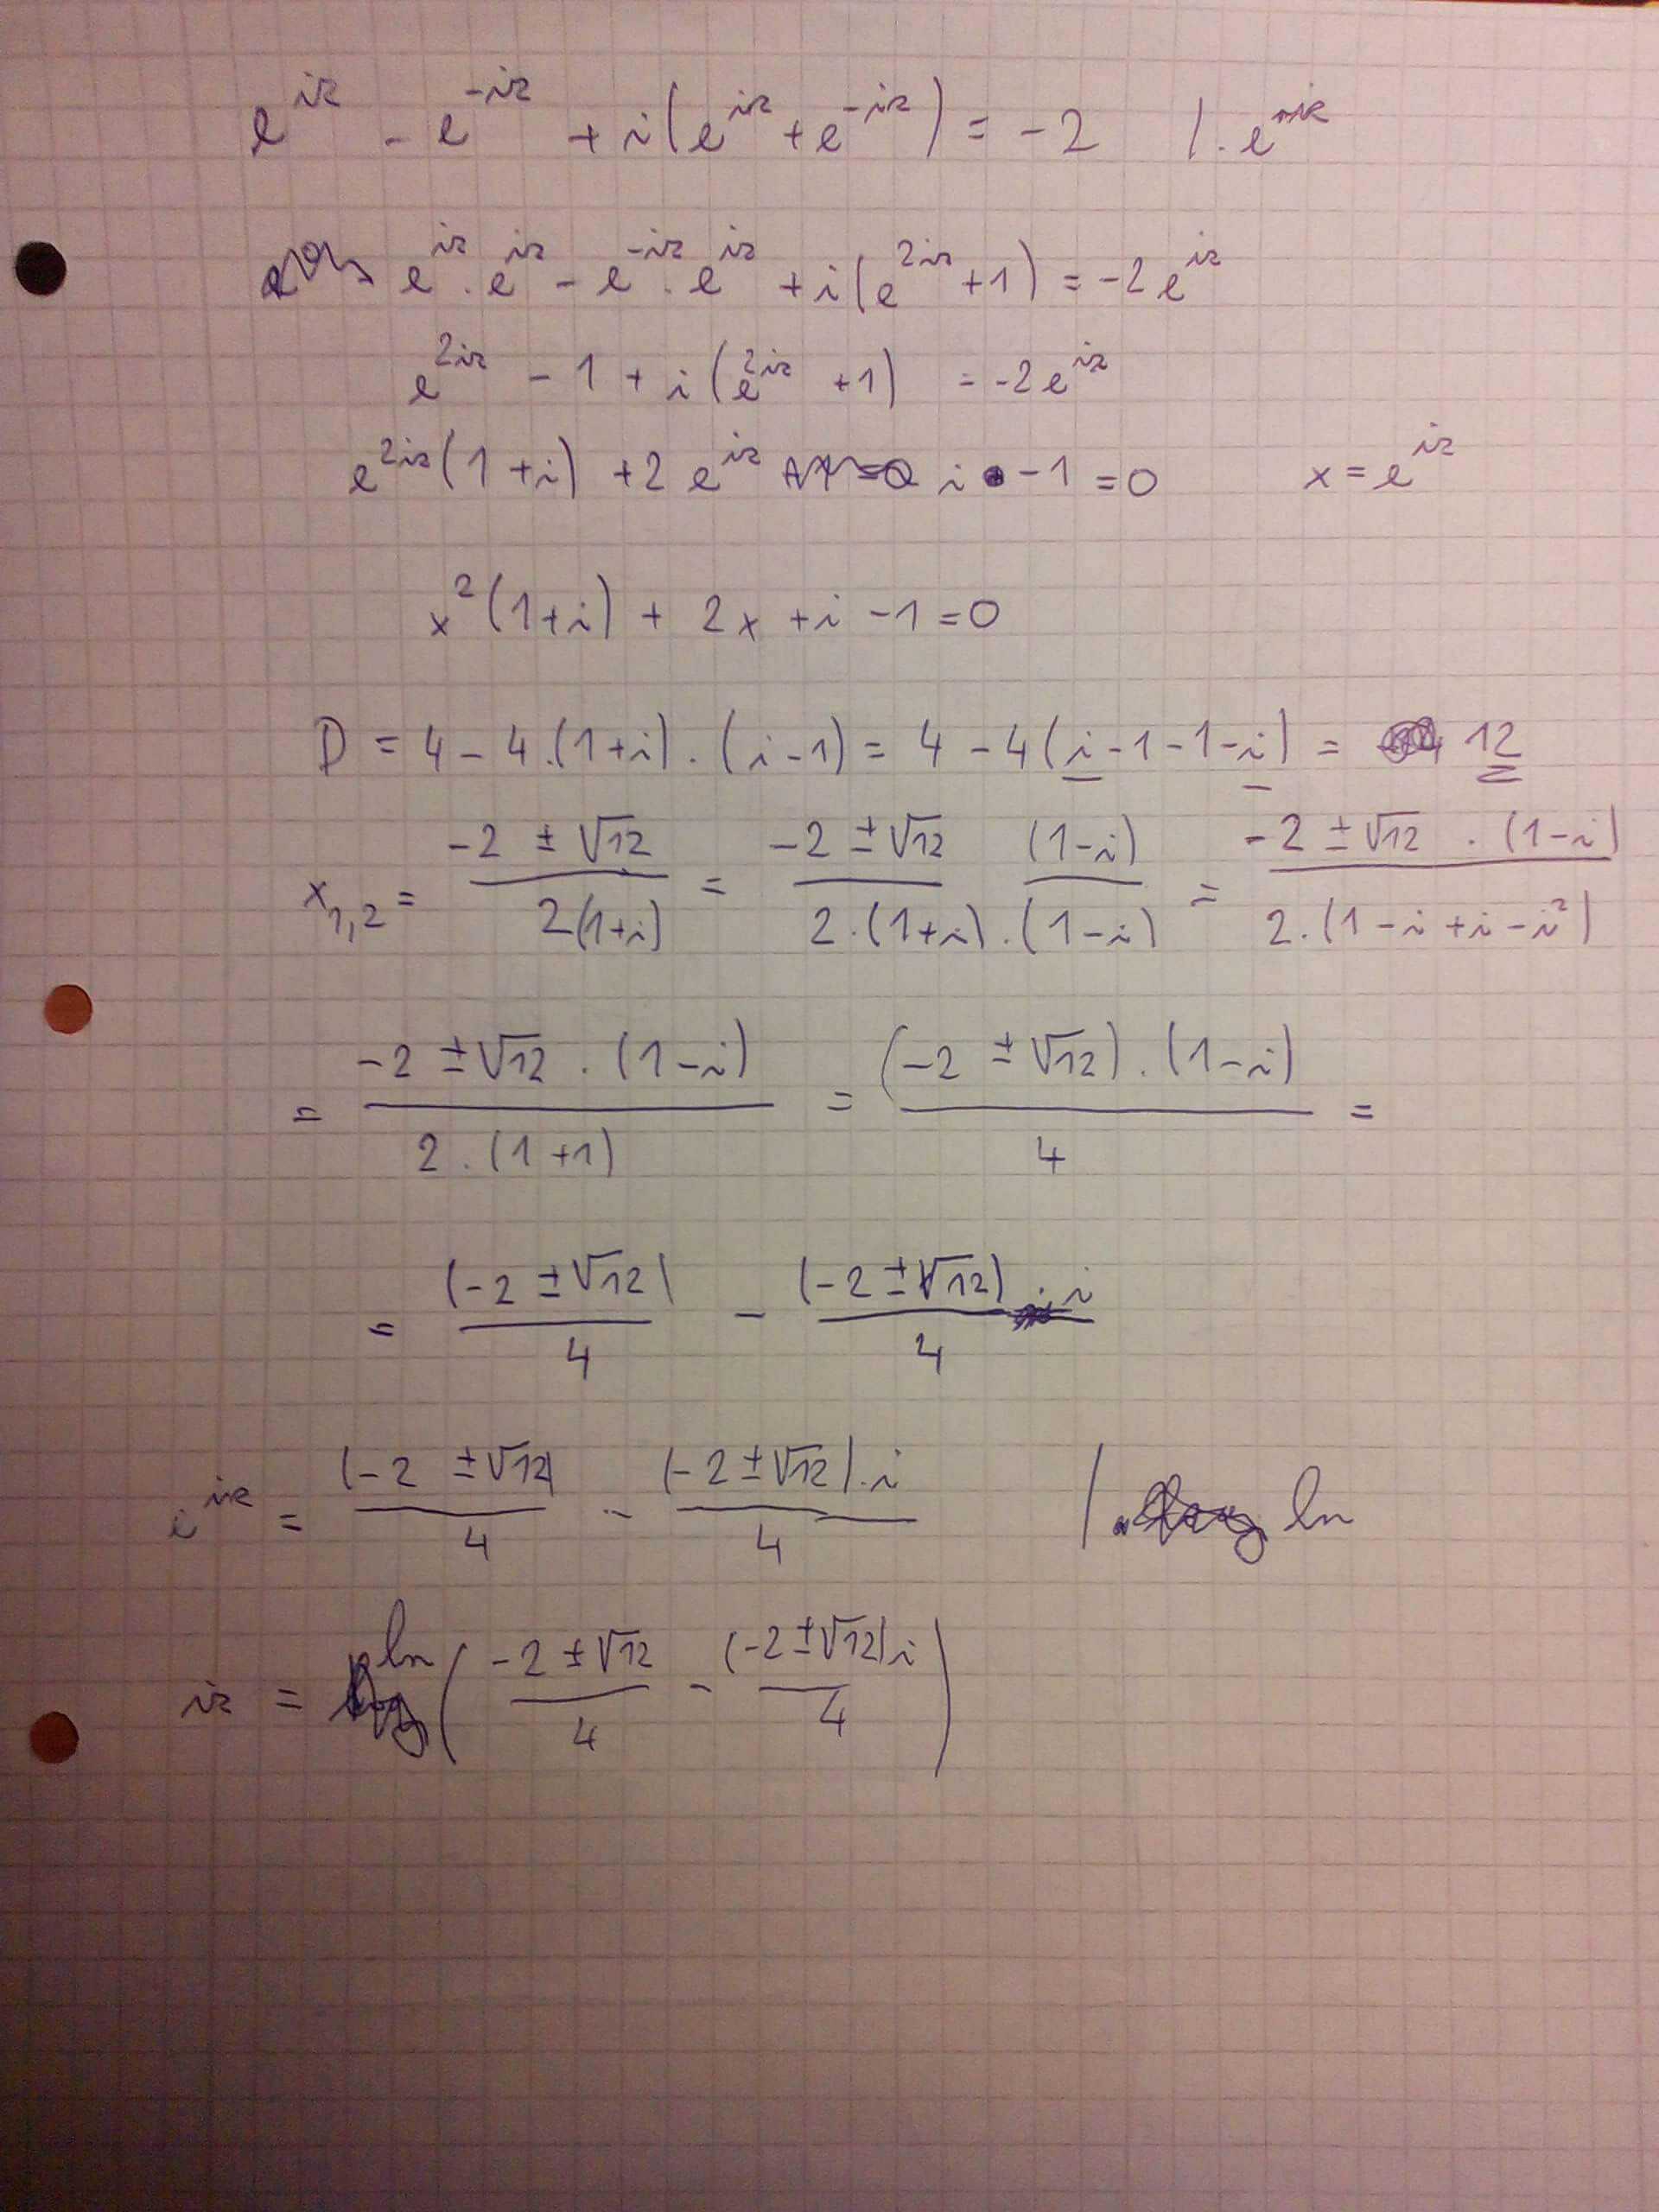 e^{iz} - e^{-iz} + i(e^{iz} + e^{-iz}) = -2 /· e^{iz}
e^{iz} · e^{iz} - e^{-iz} · e^{iz} + i(e^{2iz} + 1) = -2e^{iz}
e^{2iz} - 1 + i(e^{2iz} + 1) = -2e^{iz}
e^{2iz}(1+i) + 2e^{iz} i - 1 = 0 x = e^{iz}
x^2(1+i) + 2x + i - 1 = 0
D = 4 - 4·(1+i)·(i-1) = 4 - 4(i-1-1-i) = 12
x_{1,2} = \frac{-2 ± √12}{2(1+i)} = \frac{-2 ± √12}{2·(1+i)} · \frac{(1-i)}{(1-i)} = \frac{-2 ± √12 · (1-i)}{2·(1-i+i-i^2)}
= \frac{-2 ± √12 · (1-i)}{2·(1+1)} = \frac{(-2 ± √12)·(1-i)}{4} =
= \frac{(-2 ± √12)}{4} - \frac{(-2 ± √12)·i}{4}
e^{iz} = \frac{(-2 ± √12)}{4} - \frac{(-2 ± √12)·i}{4} / ln
iz = ln(\frac{-2 ± √12}{4} - \frac{(-2 ± √12)i}{4})